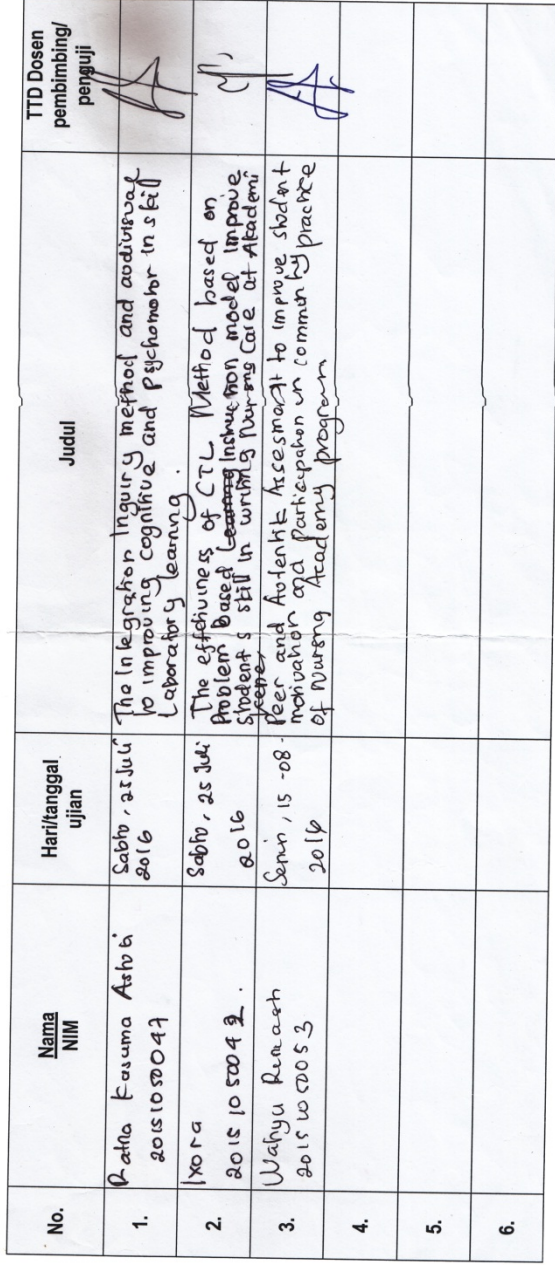 No.
Nama
NIM
Hari/tanggal
ujian
Judul
TTD Dosen
pembimbing/
penguji
1.
Ratna Kusuma Astuti
20151050047
Sabtu, 25 Juli
2016
The Integration Inquiry method and audivisual
to improving cognitive and Psychomotor in skill
Laboratory learning.
2.
Ixora
20151050042.
Sabtu, 25 Juli
2016
The effectiviness of CTL Method based on
Problem based Learning Instruction model improve
student s skill in writing Nursing Care at Akademi
3.
Wahyu
20151050053
Senin, 15-08-
2016
Peer and Autentik Assesment to improve student
motivation and Participation in community practice
of Nursing Academy program
4.
5.
6.